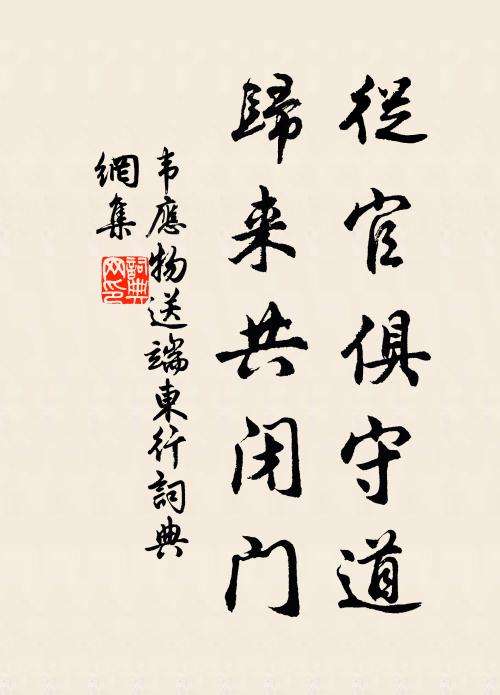 從官俱守道
歸来共闭门
韦應物送端東行詞典
網集
詞典
网印